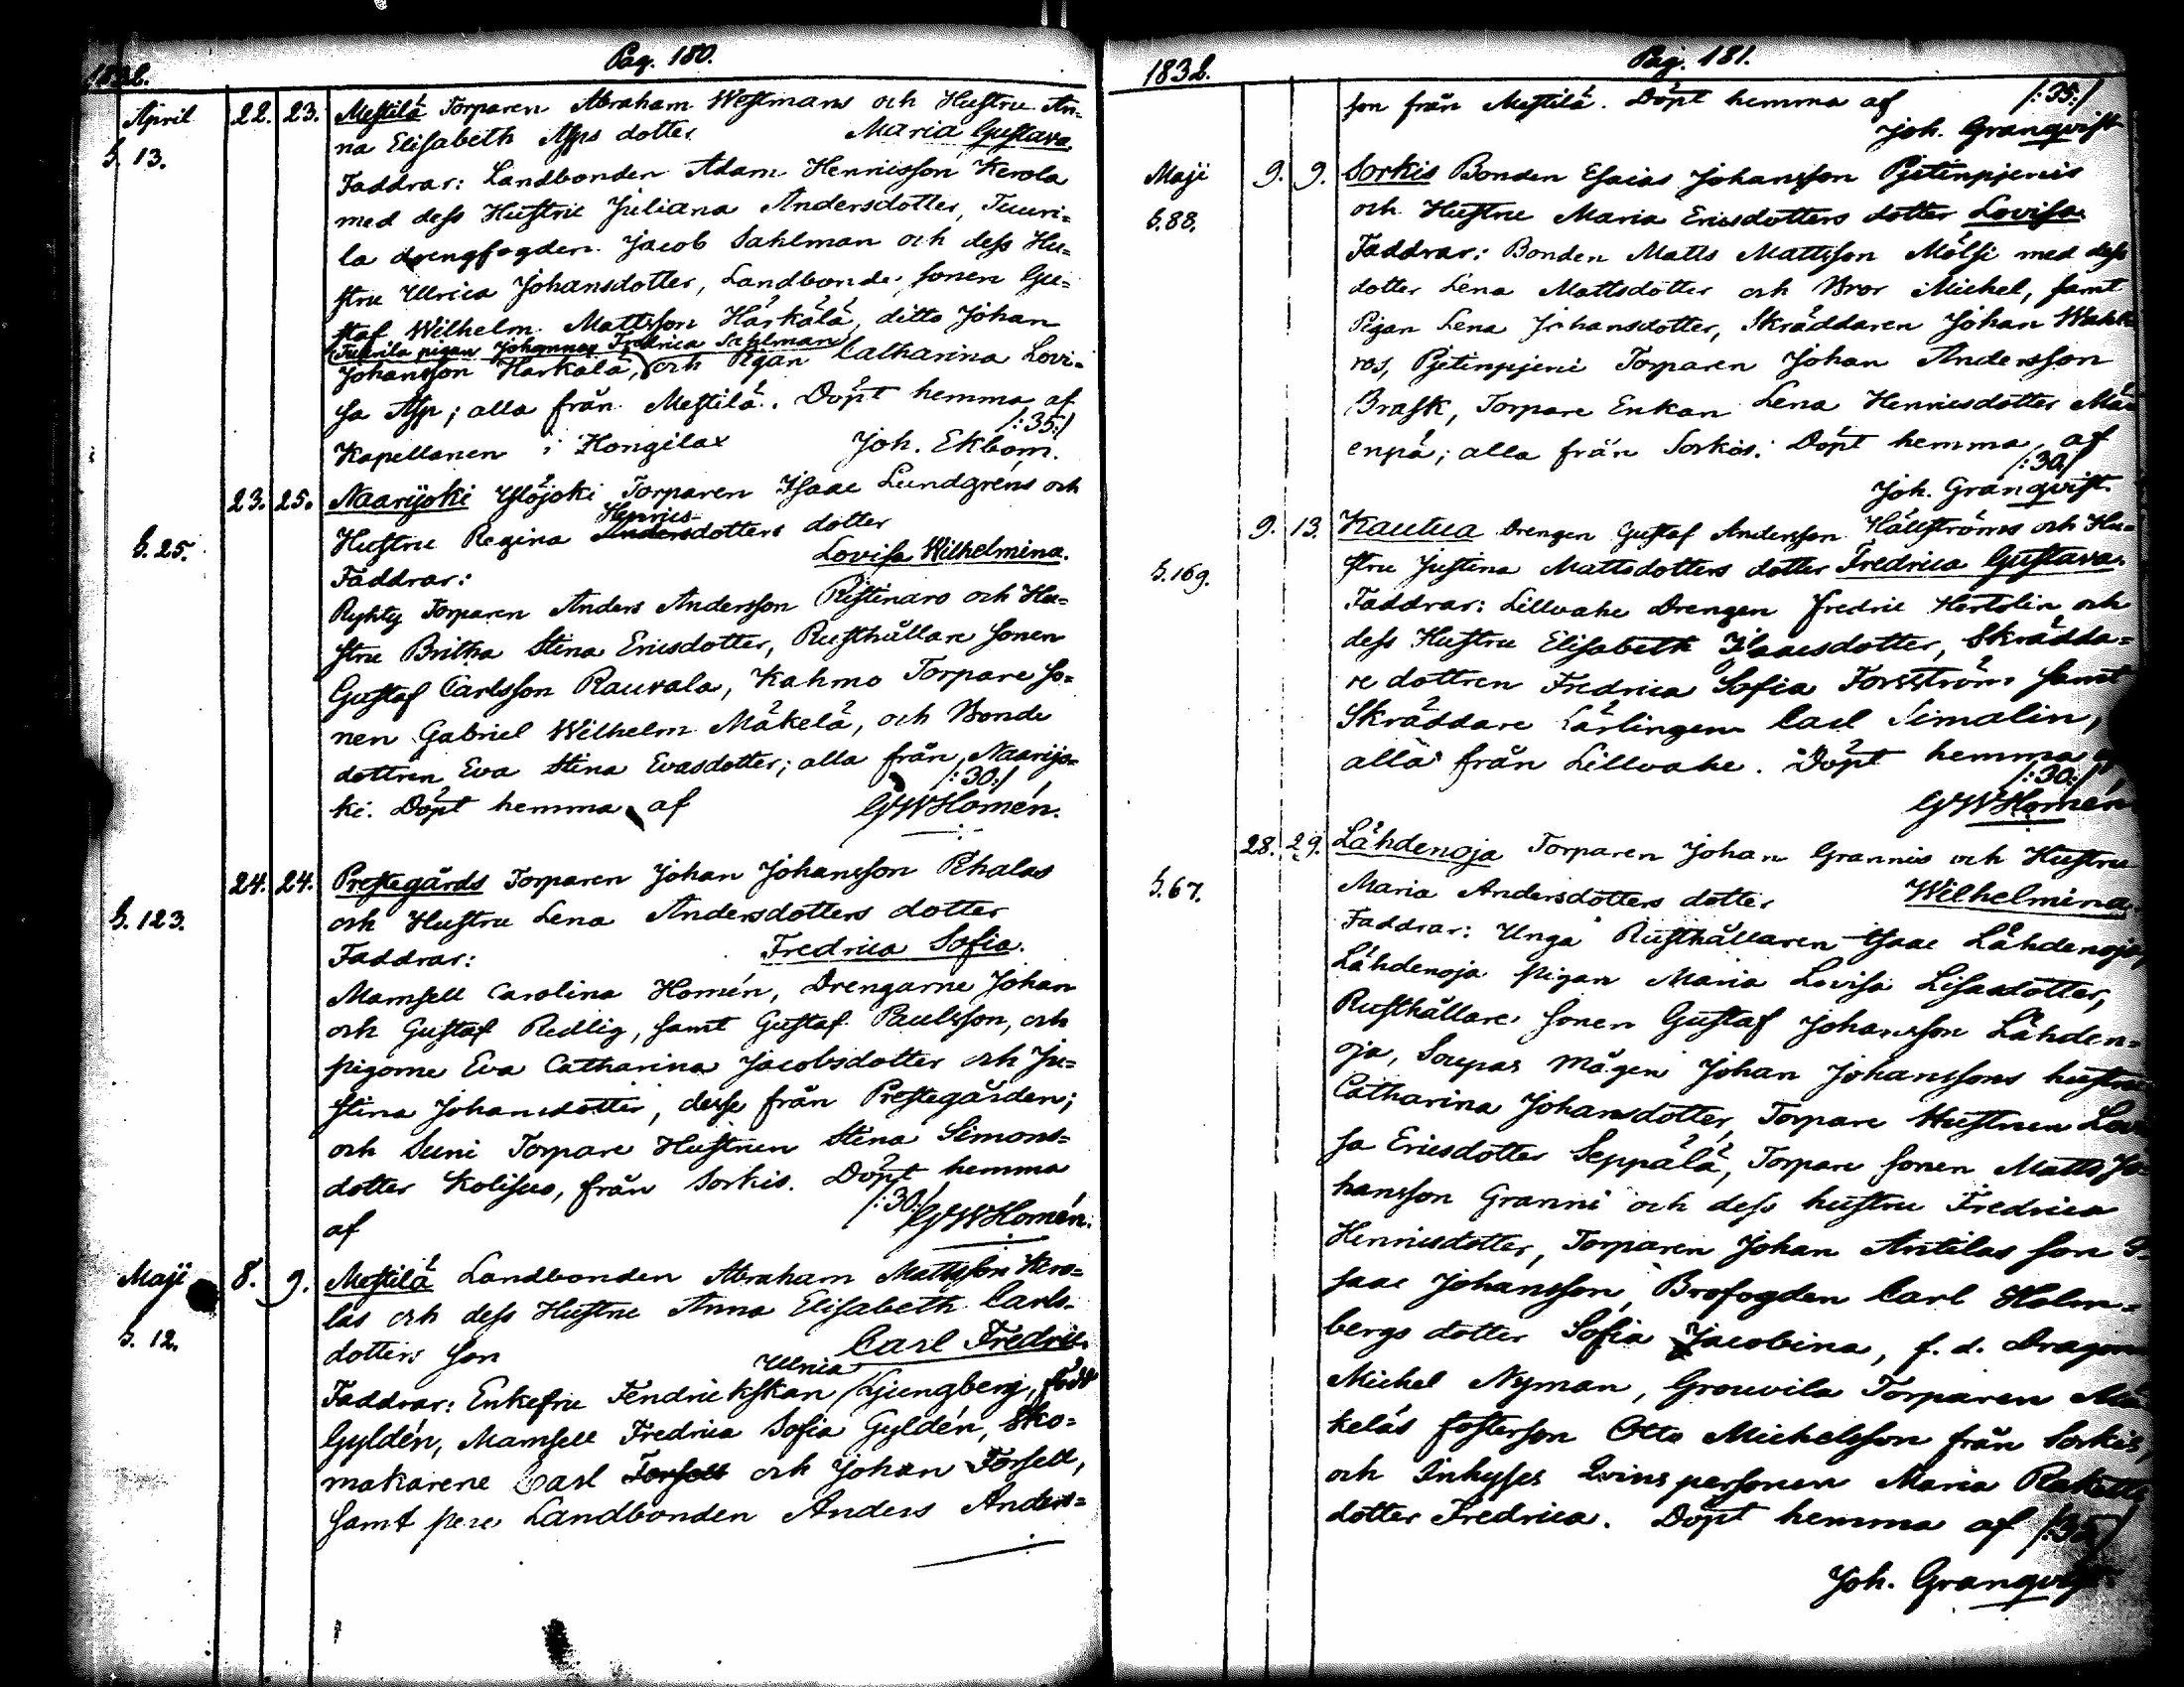 Pag. 180.
1832.
April 22. 23. Mestilä Torparen Abraham Westmans och Hustru An-
na Elisabeth Asps dotter Maria Gustava.
S. 13.
Faddrar: Landbonden Adam Henricsson Kerola
med dess Hustru Juliana Andersdotter, Tuuri-
la drengfogden Jacob Sahlman och dess Hu-
stru Ulrica Johansdotter, Landbonde sonen Gu-
staf Wilhelm Mattsson Härkälä, ditto Johan
(Tuurila pigan Johanna Fredrica Sahlman)
Johansson Härkälä, och Pigan Catharina Lovi-
sa Asp; alla från Mestilä. Döpt hemma af
/:35:/
Kapellanen i Hongilax Joh. Ekbom.
23. 25. Naarijoki Ylöjoki Torparen Isaac Lundgrens och
Henrics-
Hustru Regina Andersdotters dotter
S. 25.
Lovisa Wilhelmina.
Faddrar:
Ryhty Torparen Anders Andersson Ristinaro och Hu-
stru Britha Stina Ericsdotter, Rusthållare sonen
Gustaf Carlsson Rauvala, Kahmo Torpare so-
nen Gabriel Wilhelm Mäkelä, och Bonde
dottren Eva Stina Evasdotter; alla från Naarijo-
/:30:/
ki. Döpt hemma af GWHomén.
24. 24. Prestegårds Torparen Johan Johansson Rhalas
och Hustru Lena Andersdotters dotter
S. 123.
Faddrar: Fredrica Sofia.
Mamsell Carolina Homén, Drengarne Johan
och Gustaf Redlig, samt Gustaf Paulsson, och
pigorne Eva Catharina Jacobsdotter och Ju-
stina Johansdotter, desse från Prestegården;
och Suni Torpare Hustrun Stina Simons-
dotter Kolisuo, från Sorkis. Döpt hemma
af /:30:/ GWHomén.
Maji 8. 9. Mestilä Landbonden Abraham Mattsson Kero-
las och dess Hustru Anna Elisabeth Carls-
S. 12.
dotters son Carl Fredric.
Ulrica
Faddrar: Enkefru Fendrickskan Ljungberg, född
Gyldén, Mamsell Fredrica Sofia Gyldén, Sko-
makarene Carl Forsell och Johan Forsell,
samt Landbonden Anders Anders-
Pag. 181.
1832.
son från Mestilä. Döpt hemma af /:35:/
Joh. Granqvist
Maji 9. 9. Sorkis Bonden Esaias Johansson Pjetinpjenis
och Hustru Maria Ericsdotters dotter Lovisa.
S. 88.
Faddrar: Bonden Matts Mattsson Mölsi med dess
dotter Lena Mattsdotter och Bror Michel, samt
Pigan Lena Johansdotter, Skräddaren Johan
ros, Pjetinpjeni Torparen Johan Andersson
Brask, Torpare Enkan Lena Henricsdotter Mä-
enpä; alla från Sorkis. Döpt hemma af
/:30:/
Joh. Granqvist.
9. 13. Kautua Drengen Gustaf Andersson Hällströms och Hu-
stru Justina Mattsdotters dotter Fredrica Gustava.
S. 169.
Faddrar: Lillvahe Drengen Fredric Hertolin och
dess Hustru Elisabeth Isaacsdotter, Skrädda-
re dottren Fredrica Sofia Forsström samt
Skräddare Lärlingen Carl Simalin,
alla från Lillvahe. Döpt hemma af
/:30:/
GWHomén
28. 29. Lähdenoja Torparen Johan Grannis och Hustru
S. 67.
Maria Andersdotters dotter Wilhelmina.
Faddrar: Unga Rusthållaren Isaac Lähdenoja,
Lähdenoja pigan Maria Lovisa Lisasdotter,
Rusthållare sonen Gustaf Johansson Lähden-
oja, Soupas Mågen Johan Johanssons hustru
Catharina Johansdotter, Torpare Hustrun Lovi-
sa Ericsdotter Seppälä, Torpare sonen Matts Jo-
hansson Granni och dess hustru Fredrica
Henricsdotter, Torparen Johan Antilas son I-
saac Johansson, Brofogden Carl Holm-
bergs dotter Sofia Jacobina, f. d. Dragon
Michel Nyman, Grouvila Torparen Mä-
keläs fosterson Otto Michelsson från Sorkis,
och Inhyses Qvinspersonen Maria Raketts
dotter Fredrica. Döpt hemma af /:35:/
Joh. Granqvist.